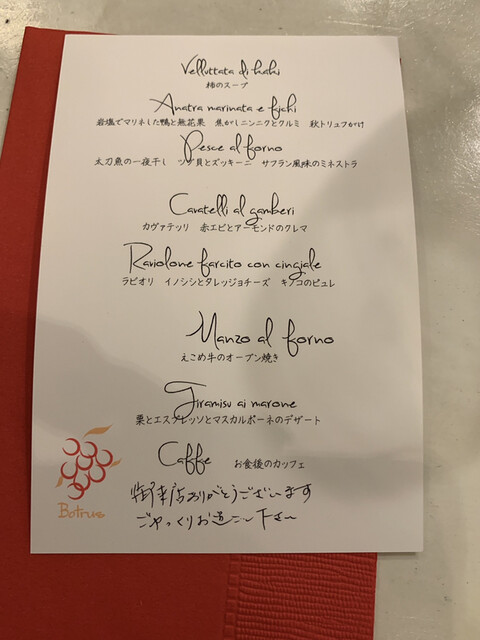 Velluttata di kaki
柿のスープ
Anatra marinata e fichi
岩塩でマリネした鴨と無花果　焦がしニンニクとクルミ　秋トリュフがけ
Pesce al forno
太刀魚の一夜干し　ツブ貝とズッキーニ　サフラン風味のミネストラ
Cavatelli al gamberi
カヴァテッリ　赤エビとアーモンドのクレマ
Raviolone farcito con cingiale
ラビオリ　イノシシとタレッジョチーズ　キノコのピュレ
Manzo al forno
えこめ牛のオーブン焼き
Tiramisu ai marone
栗とエスプレッソとマスカルポーネのデザート
Caffe　お食後のカッフェ
御来店ありがとうございます
ごゆっくりお過ごし下さい
Botrus